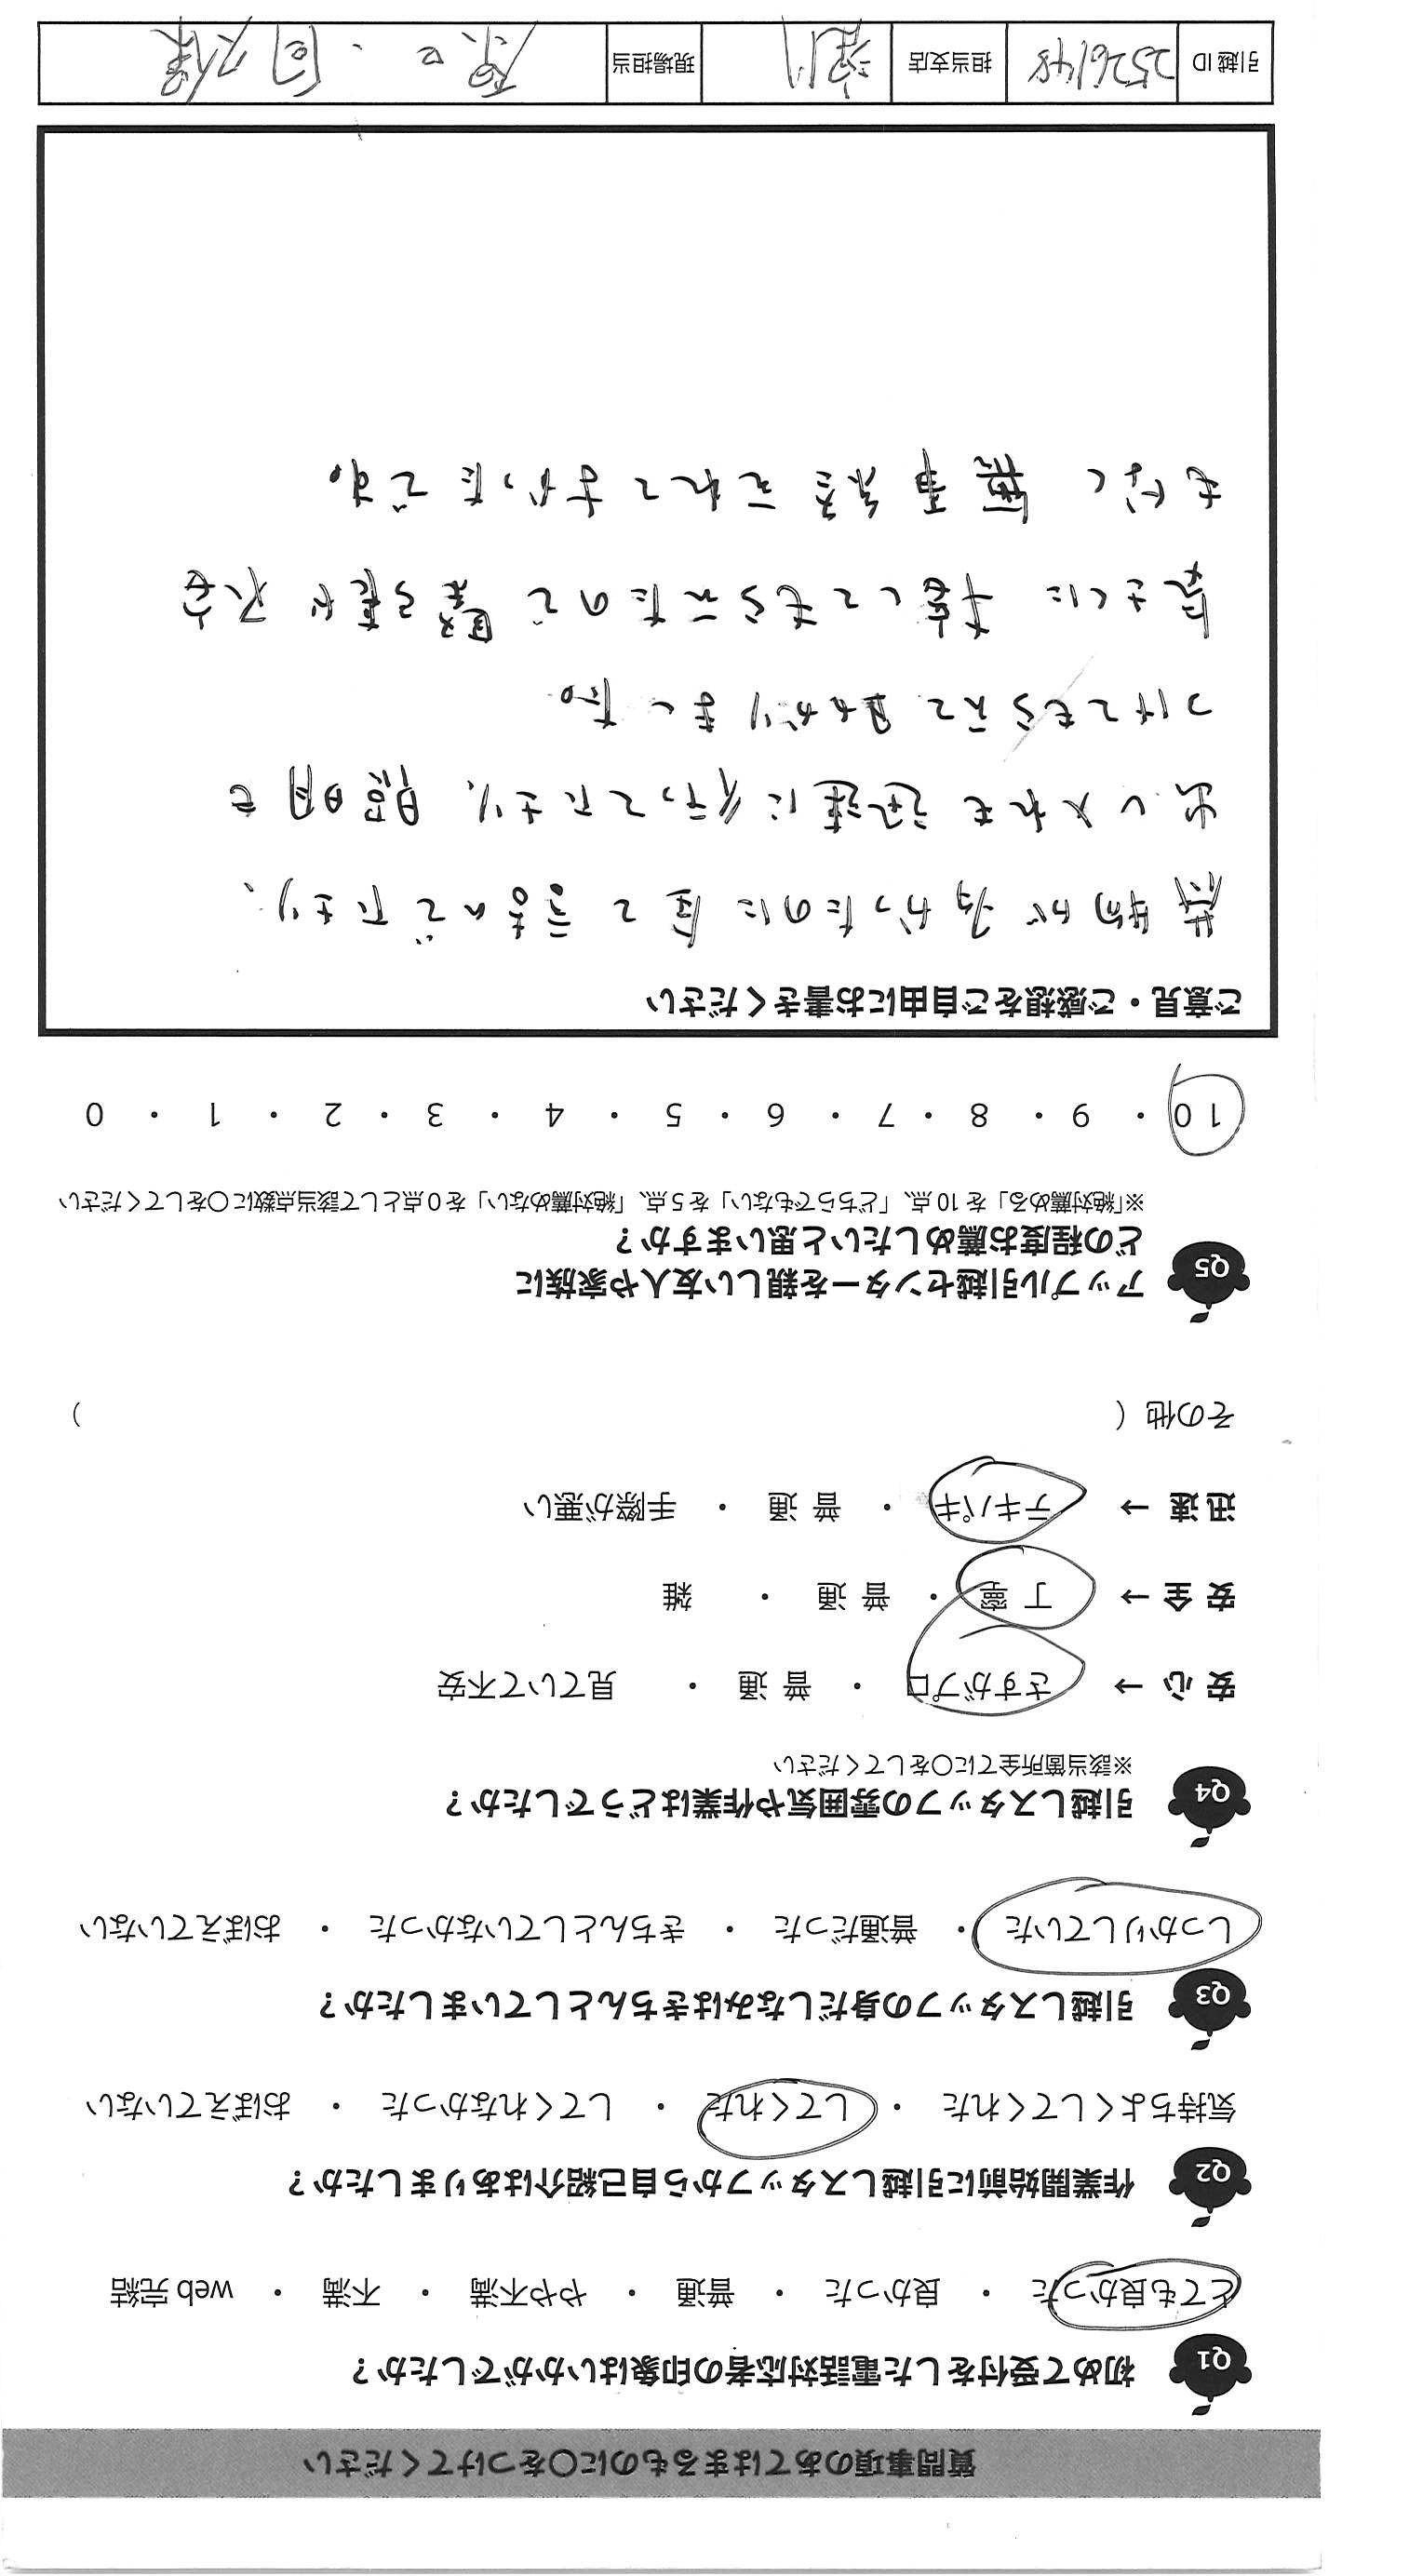 質問事項のあてはまるものに〇をつけてください
Q1 初めて受付をした電話対応者の印象はいかがでしたか？
とても良かった ・ 良かった ・ 普通 ・ やや不満 ・ 不満 ・ web 完結
Q2 作業開始前に引越しスタッフから自己紹介はありましたか？
気持ちよくしてくれた ・ してくれた ・ してくれなかった ・ おぼえていない
Q3 引越しスタッフの身だしなみはきちんとしていましたか？
しっかりしていた ・ 普通だった ・ きちんとしていなかった ・ おぼえていない
Q4 引越しスタッフの雰囲気や作業はどうでしたか？
※該当箇所全てに〇をしてください
安 心 → さすがプロ ・ 普 通 ・ 見ていて不安
安 全 → 丁 寧 ・ 普 通 ・ 雑
迅 速 → テキパキ ・ 普 通 ・ 手際が悪い
その他（ ）
Q5 アップル引越センターを親しい友人や家族に
どの程度お薦めしたいと思いますか？
※「絶対薦める」を 10 点、「どちらでもない」を 5 点、「絶対薦めない」を 0 点として該当点数に〇をしてください
10 ・ 9 ・ 8 ・ 7 ・ 6 ・ 5 ・ 4 ・ 3 ・ 2 ・ 1 ・ 0
ご意見・ご感想をご自由にお書きください
荷物が多かったのに全て詰んで下さり、
出し入れも迅速に行って下さり、照明も
つけてもらえて助かりました。
気さくに接してもらえたので緊張が
もなく無事終えれてよかったです。
引越 ID 2526148 担当支店 現場担当